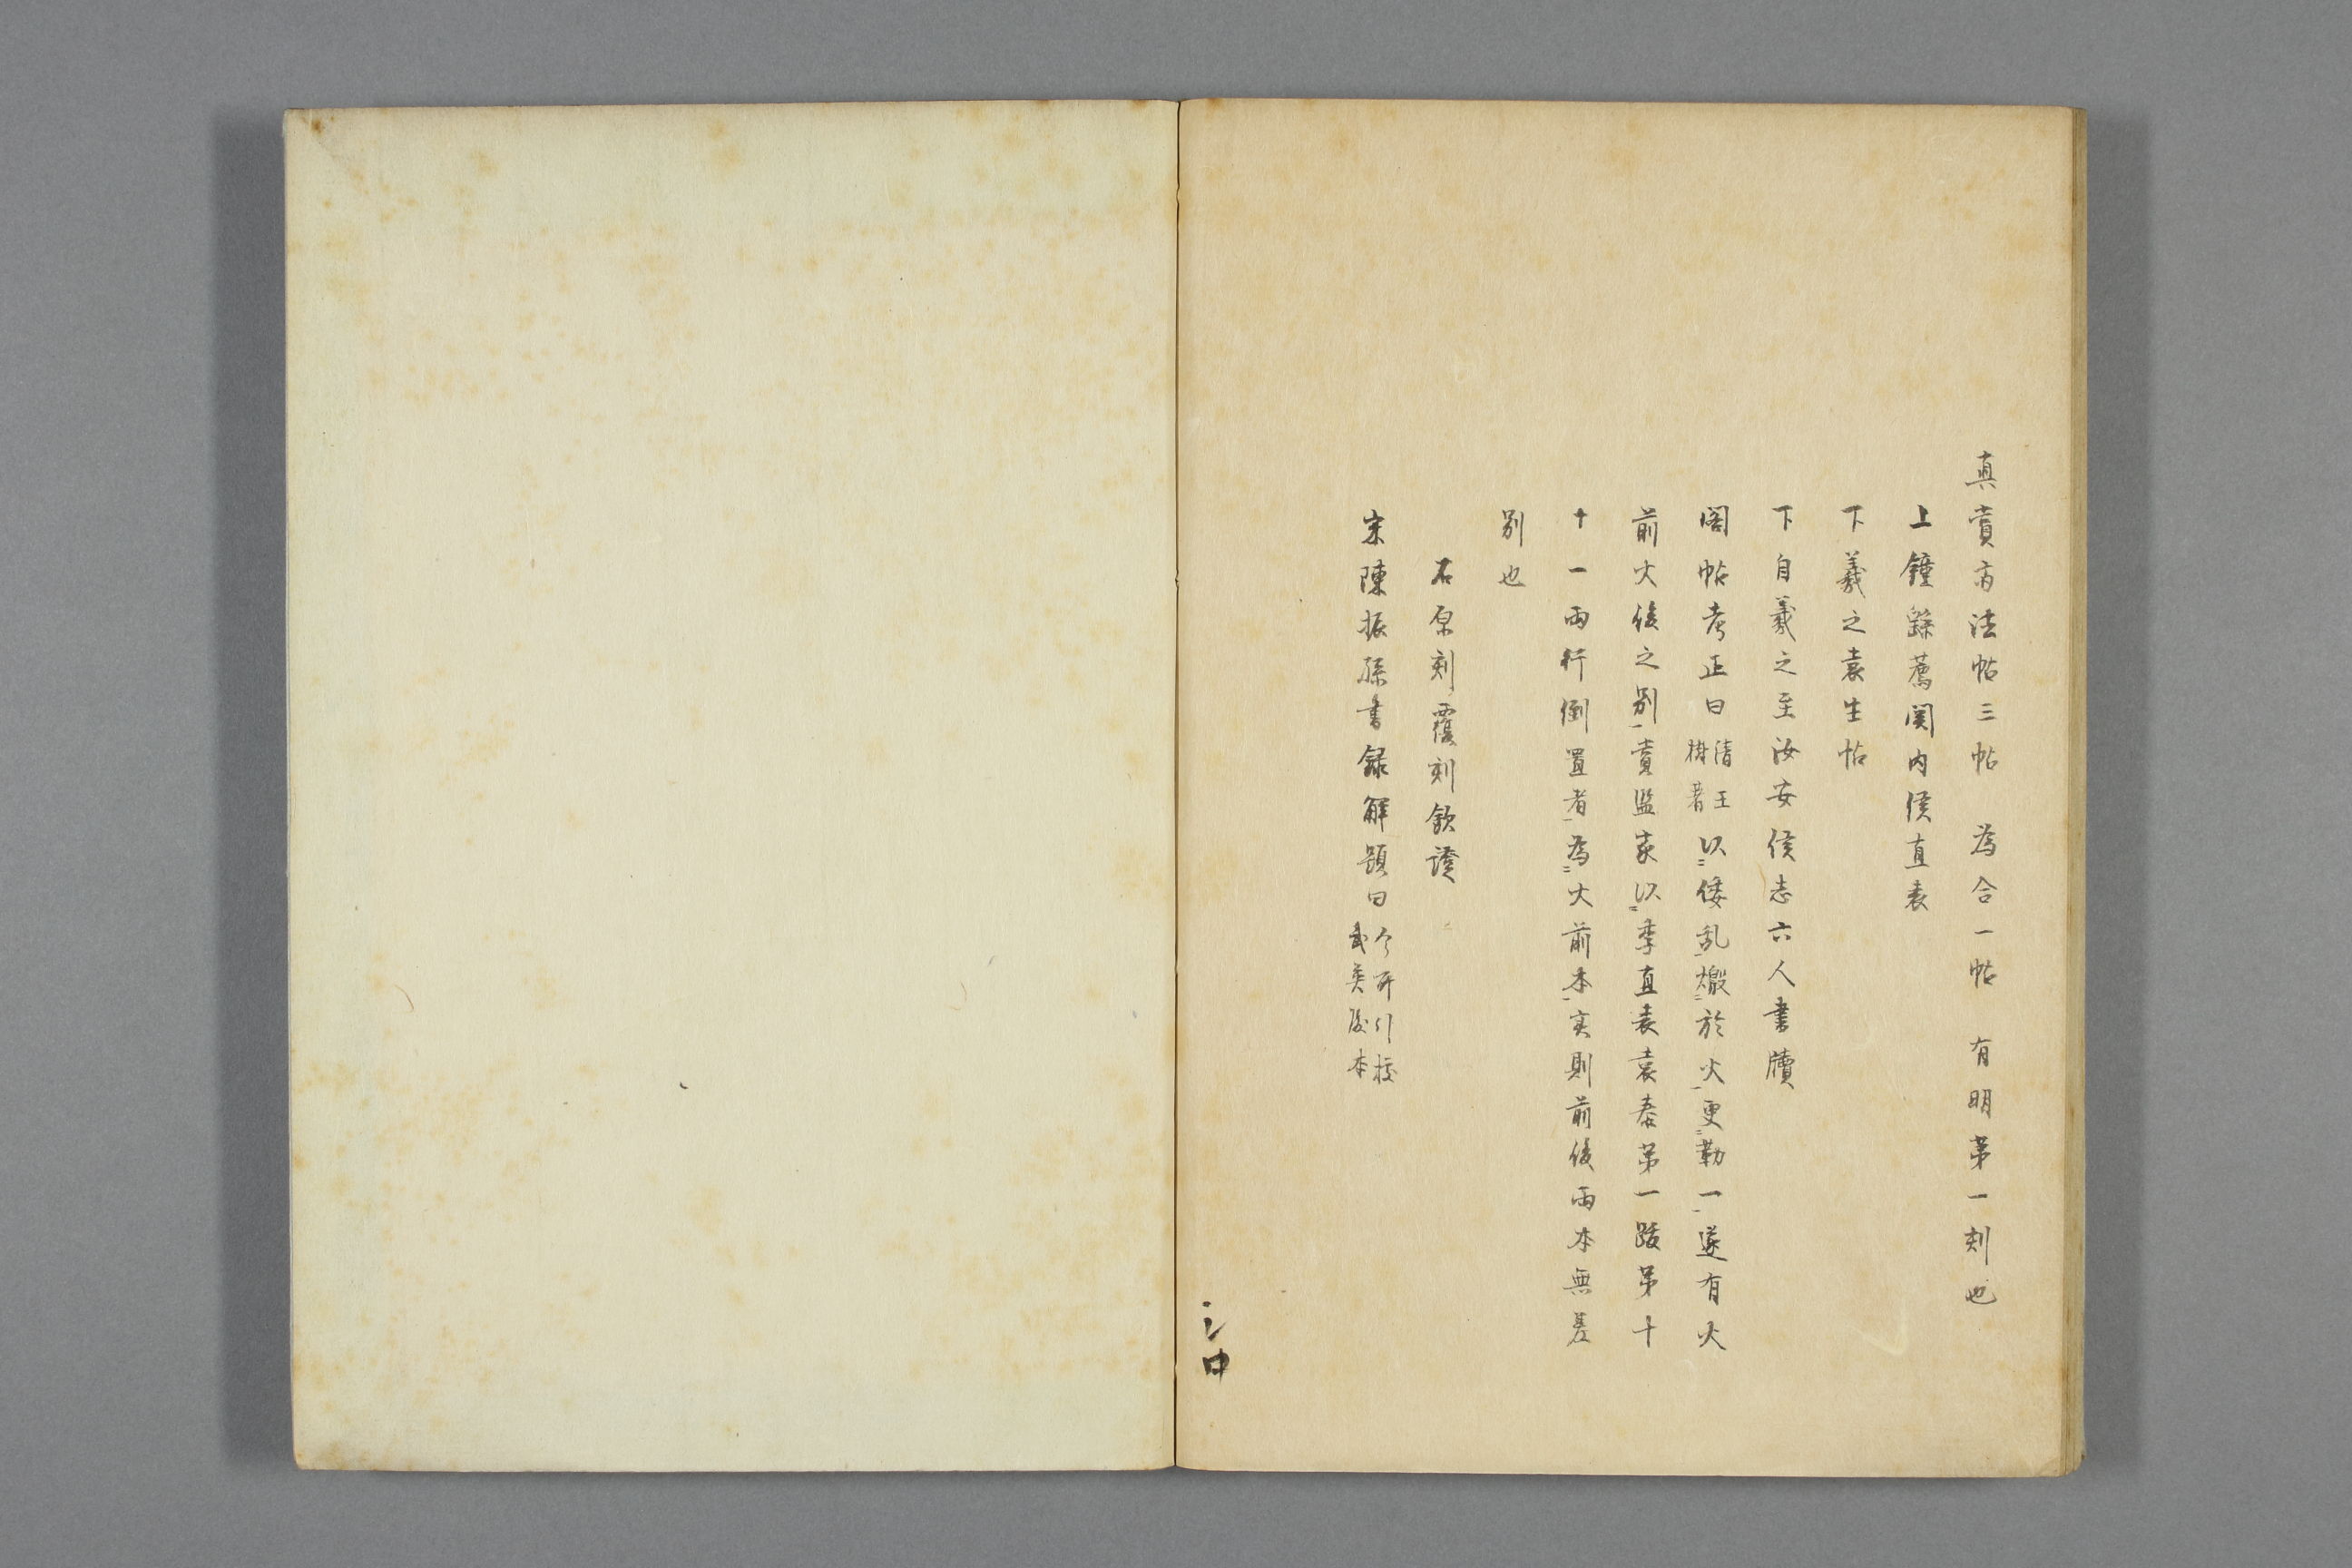 真賞斎法帖三帖 為合一帖 有明第一刻也
上鍾繇薦関内侯直表
下羲之袁生帖
下自羲之至汝安侯志六人書牘
閣帖考正曰 清王澍著 以倭乱燬於火更勒一遂有火
前火後之別賞鑑家以季直表袁泰第一跋第十
十一両行倒置者為火前本実則前後両本無差
別也
石原刻覆刻欽讃
宋陳振孫書録解題曰 今所引校武英殿本